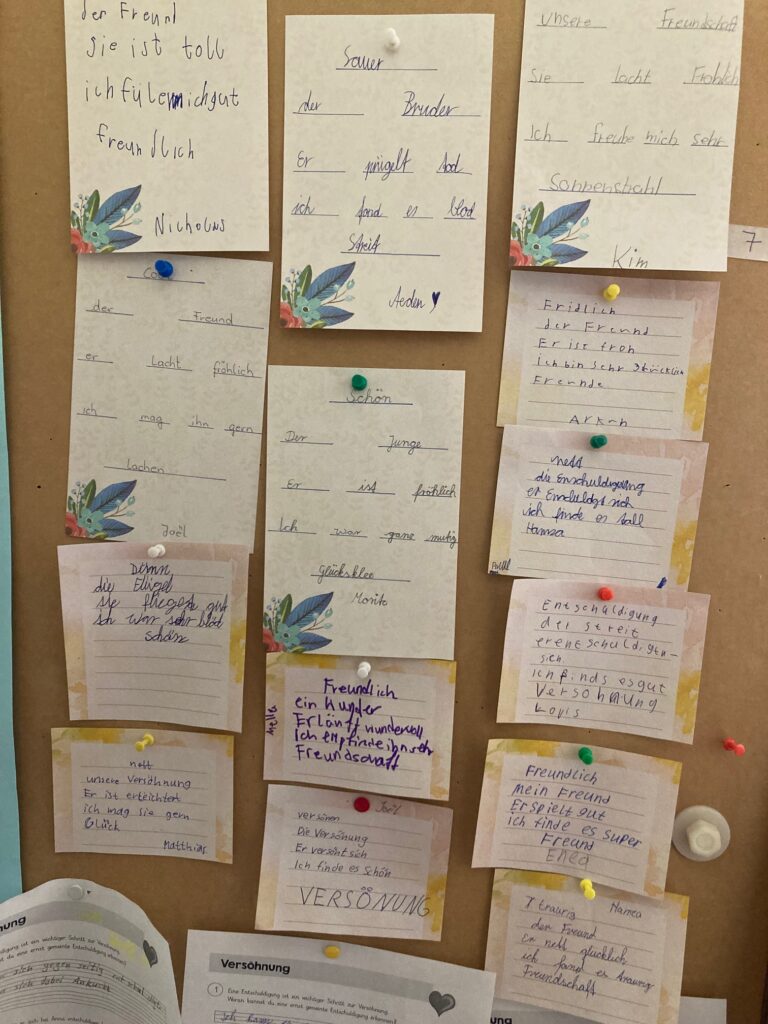 der Freund
sie ist toll
ich füle mich gut
freundlich
Sauer
der Bruder
Er prügelt tod
ich fand es blod
Streit
Aeden
unsere Freundschaft
Sie lacht Fröhlich
Ich freube mich sehr
Sonnenstrahl
Kim
7
der Freund
er Lacht fröhlich
ich mag ihn gern
Lachen
Joël
Schön
Der Junge
Er ist fröhlich
Ich war ganz mutig
Glücksklee
Moritz
Fridlich
der Freund
Er ist froh
ich bin sehr
Freunde
nett
die
ich finde es
Hamza
die Flügel
sie fliegen gut
ich war sehr blöd
schön
Freundlich
ein Wunder
Er Läuft wundervoll
Ich empfinde ihn
Freundschaft
Entschuldigung
der streit
er entschuldigt
sich
ich finds es gut
Versöhnung
nett
unsere Versöhnung
Er ist erleichtert
ich mag sie gern
Glück
Matthias
Joël
versönen
Die Versönung
Er versönt sich
Ich finde es schön
VERSÖNUNG
Freundlich
mein Freund
Er spielt gut
ich finde es super
Freund
Enea
traurig
der Freund
Er nett glücklich
ich fand es traurig
Freundschaft
Versöhnung
1 Eine Entschuldigung ist ein wichtiger Schritt zur Versöhnung.
Woran kannst du eine ernst gemeinte Entschuldigung erkennen?